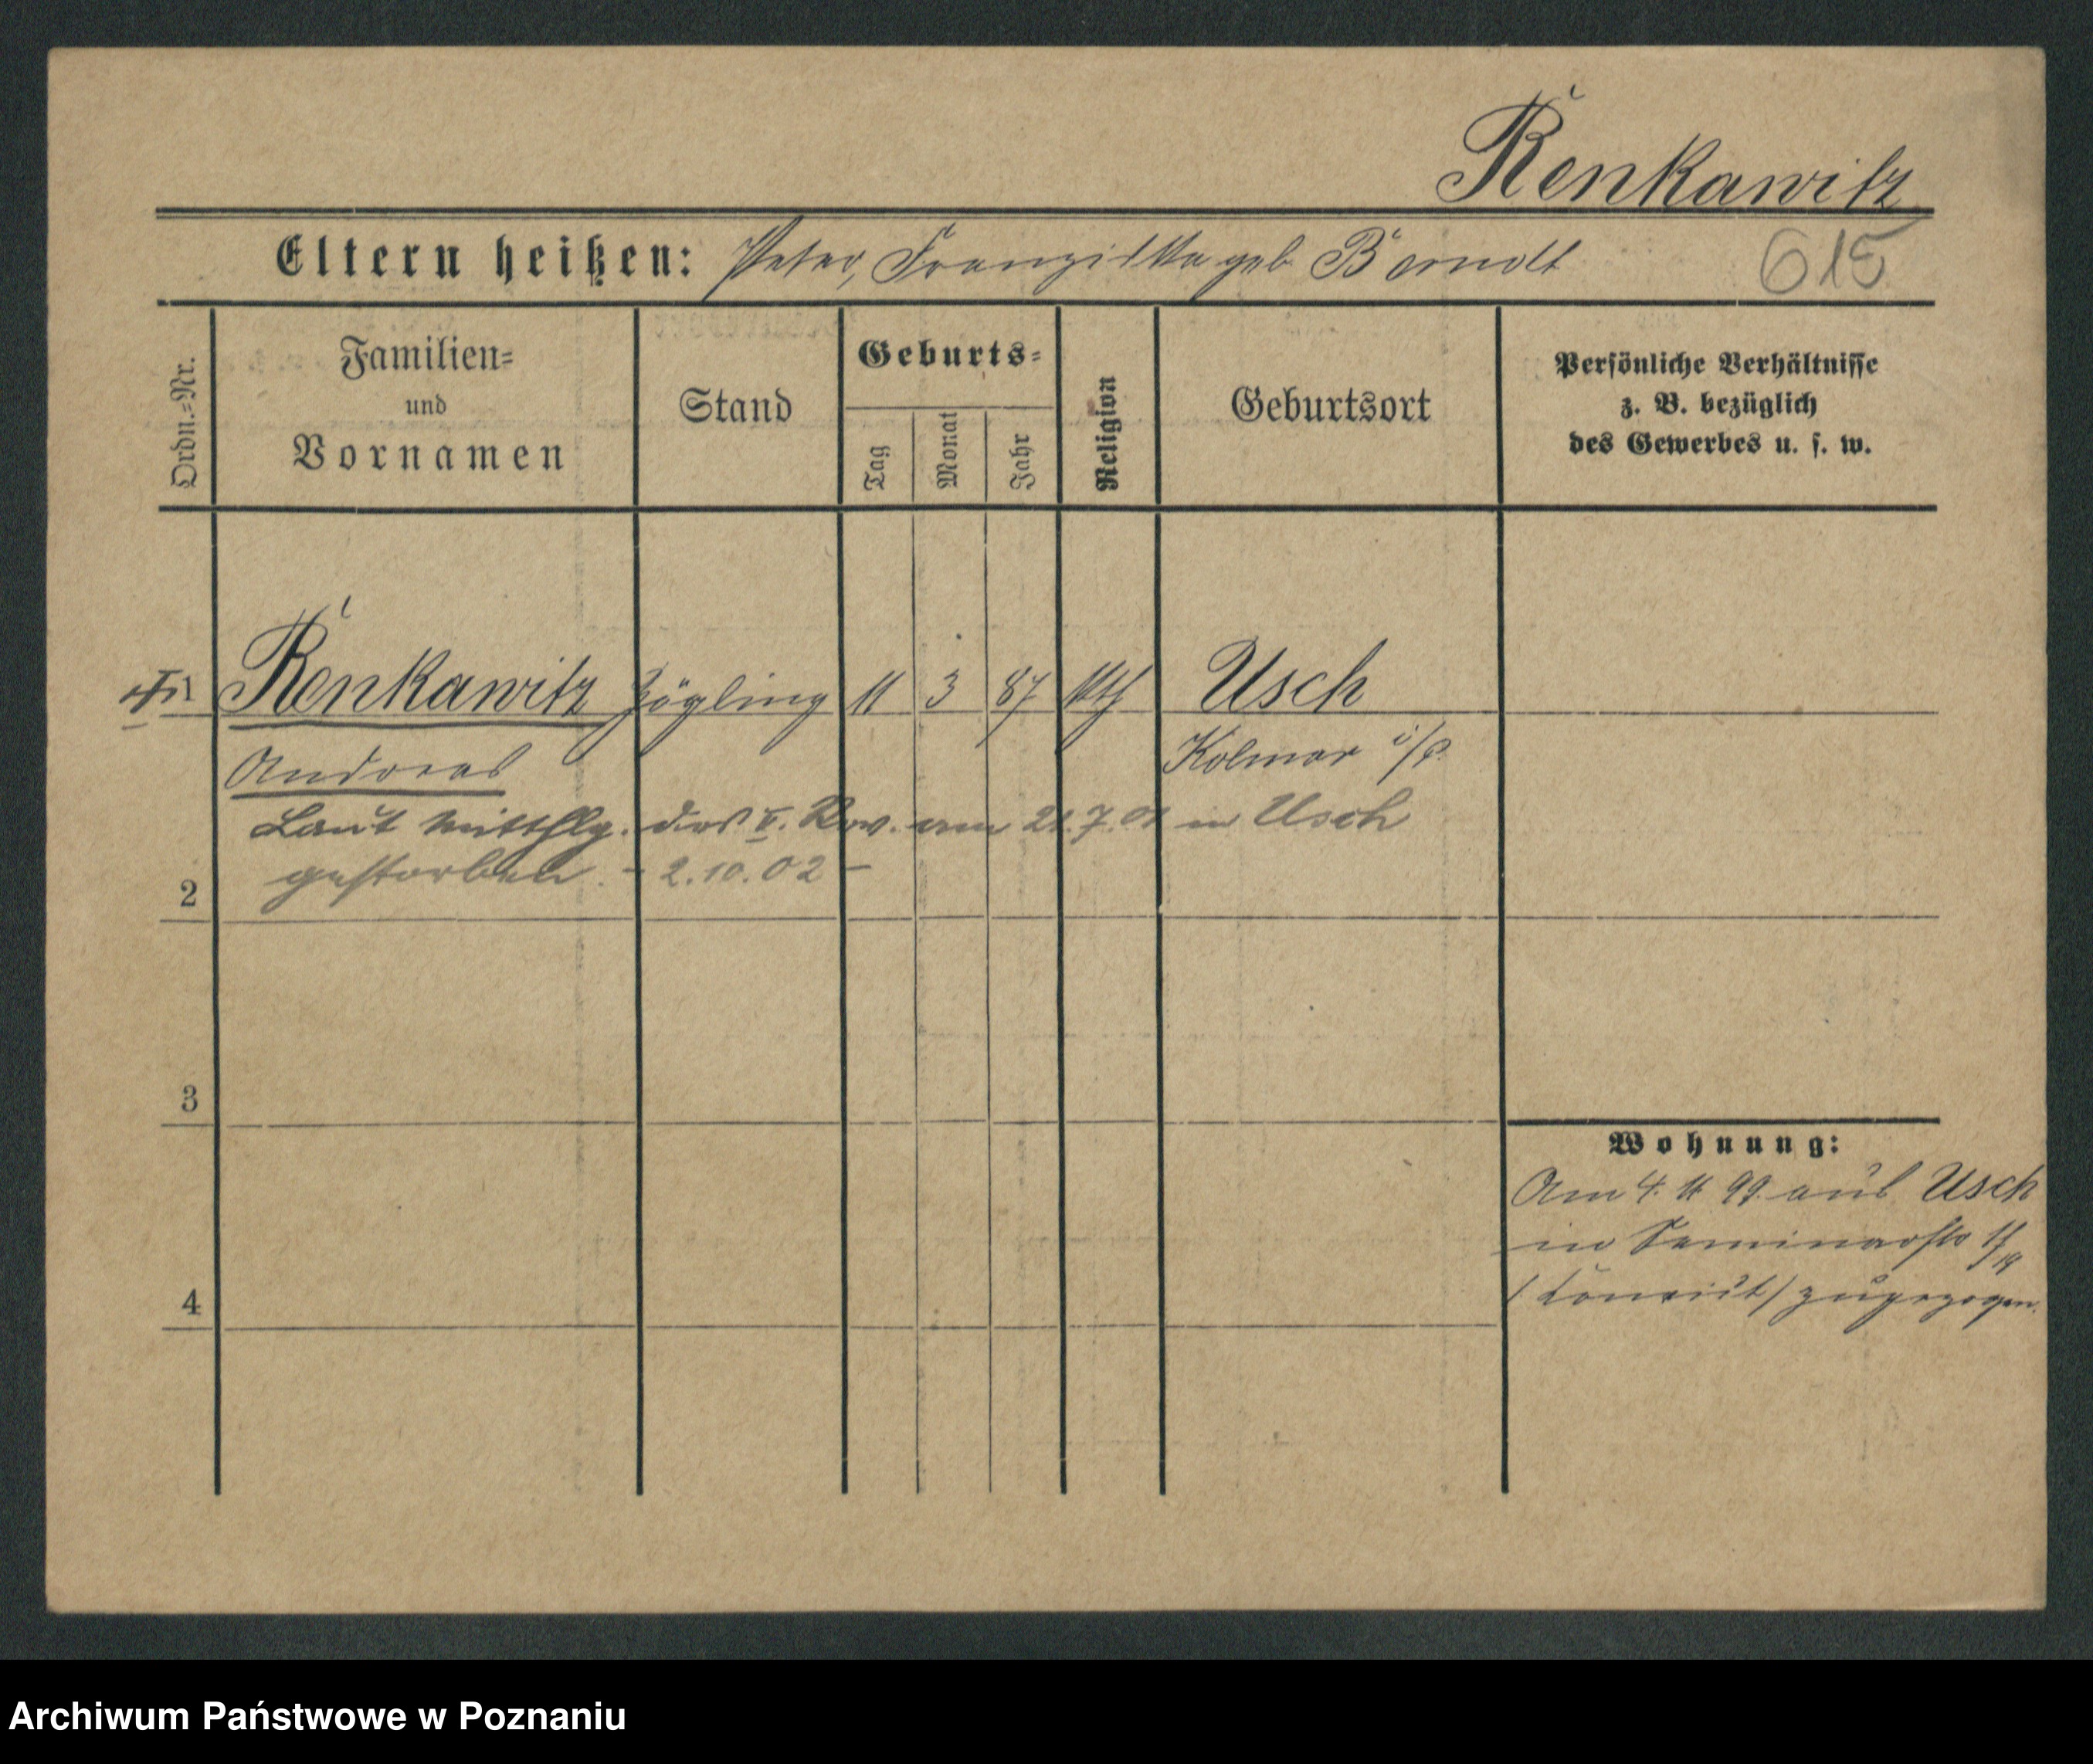 Renkawitz
Eltern heißen: Peter, Franziska geb. Berndt 615
Ordn.=Nr.
Familien=
und
Vornamen
Stand
Geburts=
Tag
Monat
Jahr
Religion
Geburtsort
Persönliche Verhältnisse
z. B. bezüglich
des Gewerbes u. s. w.
1 Renkawitz Zögling 11 3 87 kth Usch
Andreas Kolmar i/P.
Laut Mitthlg. des V. Rev. am 21.7.01 in Usch
gestorben. - 2.10.02 -
2
3
Wohnung:
Am 4. 11 99. aus Usch
in Seminarstr
(Konvikt) zugezogen.
4
Archiwum Państwowe w Poznaniu